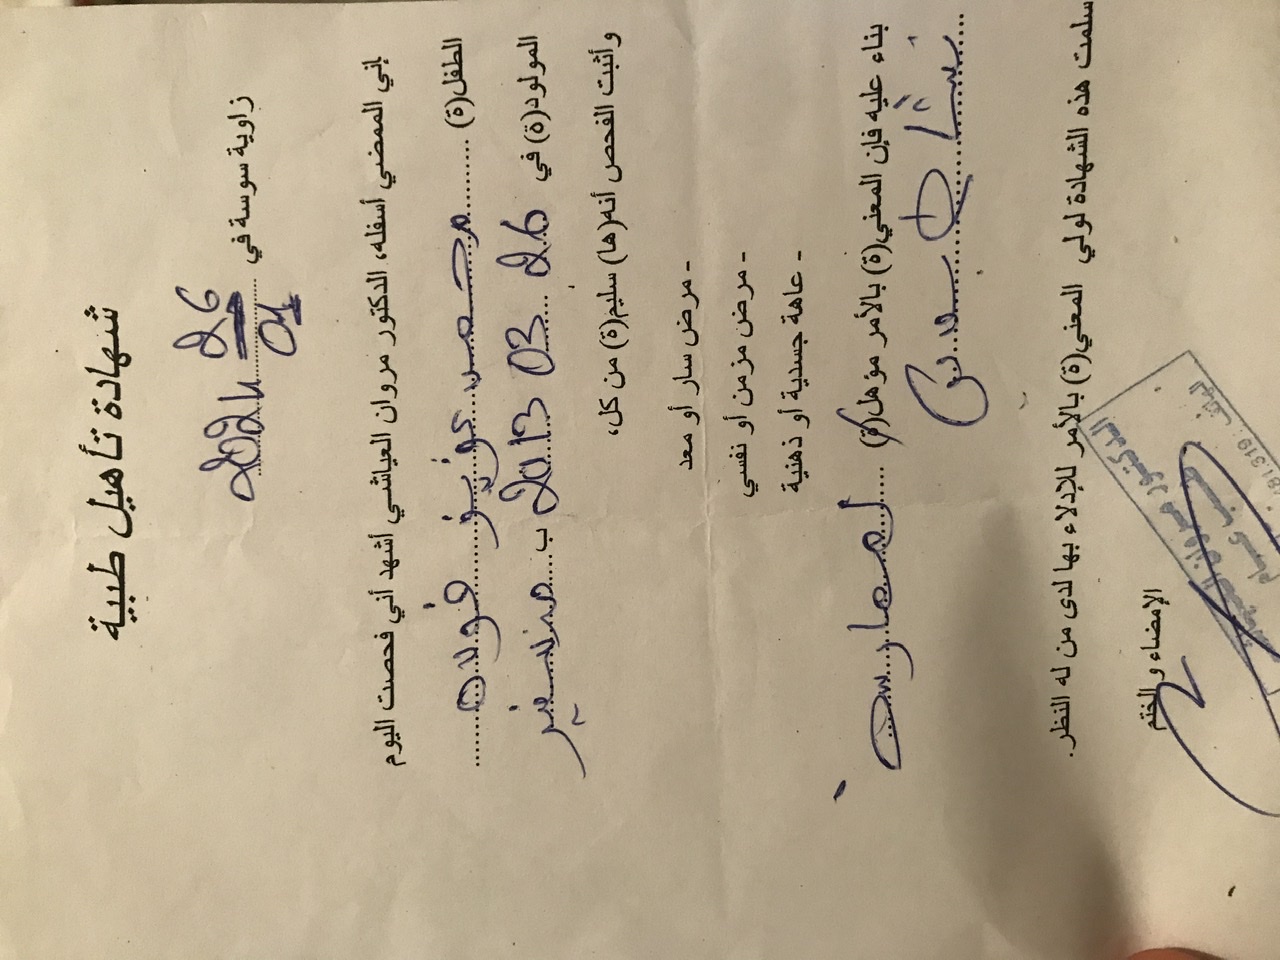 شهادة تأهيل طبية
زاوية سوسة في 26 01 2024
إني الممضي أسفله، الدكتور مروان العياشي أشهد أني فحصت اليوم
الطفل(ة) محمد عزيز
المولود(ة) في 26 03 2013 ب
وأثبت الفحص أنه(ها) سليم(ة) من كل،
- مرض سار أو معد
- مرض مزمن أو نفسي
- عاهة جسدية أو ذهنية
بناء عليه فإن المعني(ة) بالأمر مؤهل(ة) لممارسة
نشاط بدني
سلمت هذه الشهادة لولي المعني(ة) بالأمر للإدلاء بها لدى من له النظر.
الإمضاء و الختم
الدكتور مروان